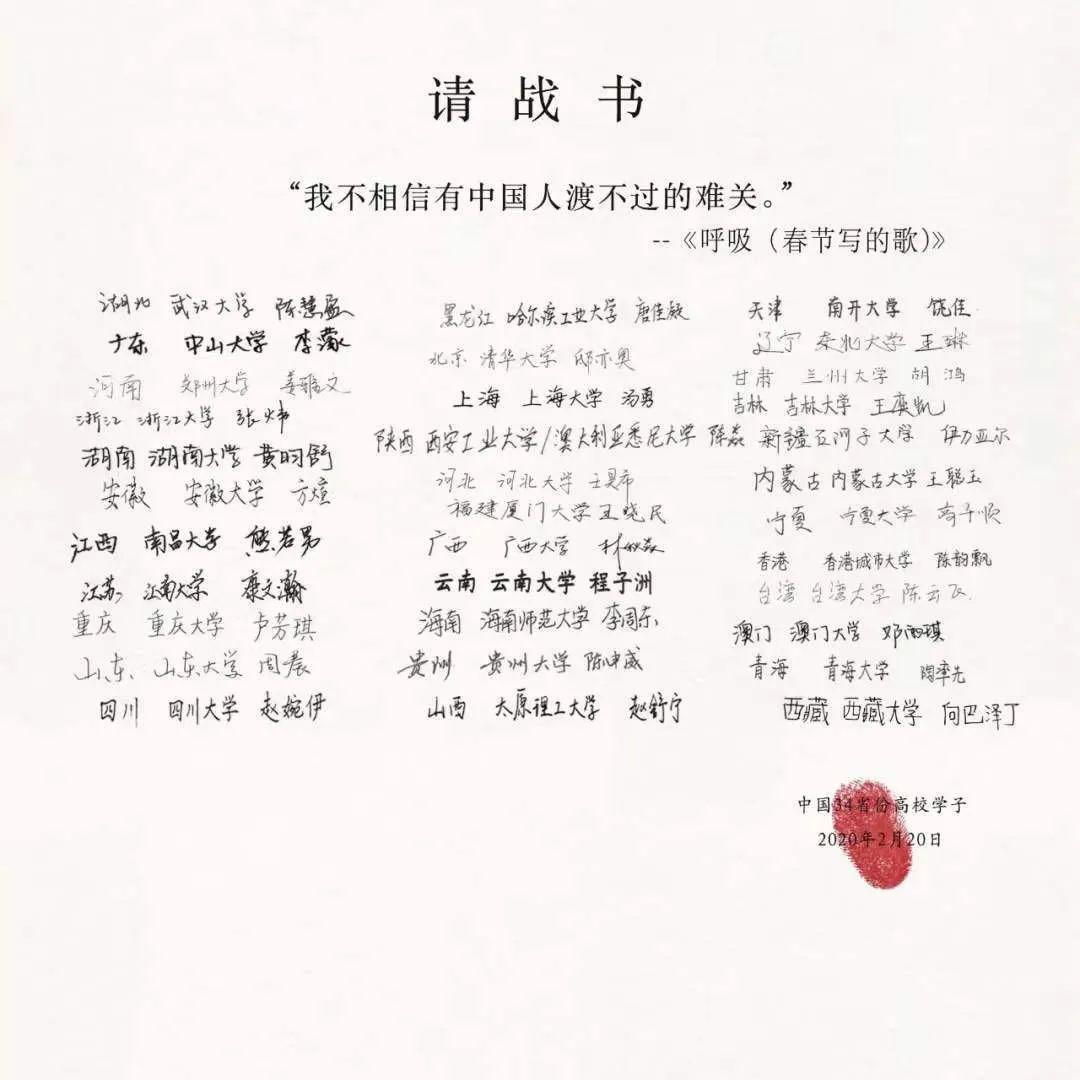 请战书
“我不相信有中国人渡不过的难关。”
--《呼吸（春节写的歌）》
湖北 武汉大学 陈慧盈
广东 中山大学 李濛
河南 郑州大学 姜雅文
浙江 浙江大学 张炜
湖南 湖南大学 黄昀舒
安徽 安徽大学 方煊
江西 南昌大学 熊若男
江苏 江南大学 康文瀚
重庆 重庆大学 卢芳琪
山东 山东大学 周晨
四川 四川大学 赵婉伊
黑龙江 哈尔滨工业大学 唐佳
北京 清华大学 邸亦奥
上海 上海大学 汤勇
陕西 西安工业大学/澳大利亚悉尼大学 陈焱
河北 河北大学 王昊
福建厦门大学王晓民
广西 广西大学 林
云南 云南大学 程子洲
海南 海南师范大学 李周东
贵州 贵州大学 陈申威
山西 太原理工大学 赵舒宁
天津 南开大学 饶佳
辽宁 东北大学 王琳
甘肃 兰州大学 胡鸿
吉林 吉林大学 王赓凯
新疆石河子大学 伊力亚尔
内蒙古 内蒙古大学 王聪玉
宁夏 宁夏大学 高子顺
香港 香港城市大学 陈韵飘
台湾 台湾大学 陈云飞
澳门 澳门大学 邓雨琪
青海 青海大学 陶率先
西藏 西藏大学 向巴泽丁
中国34省份高校学子
2020年2月20日